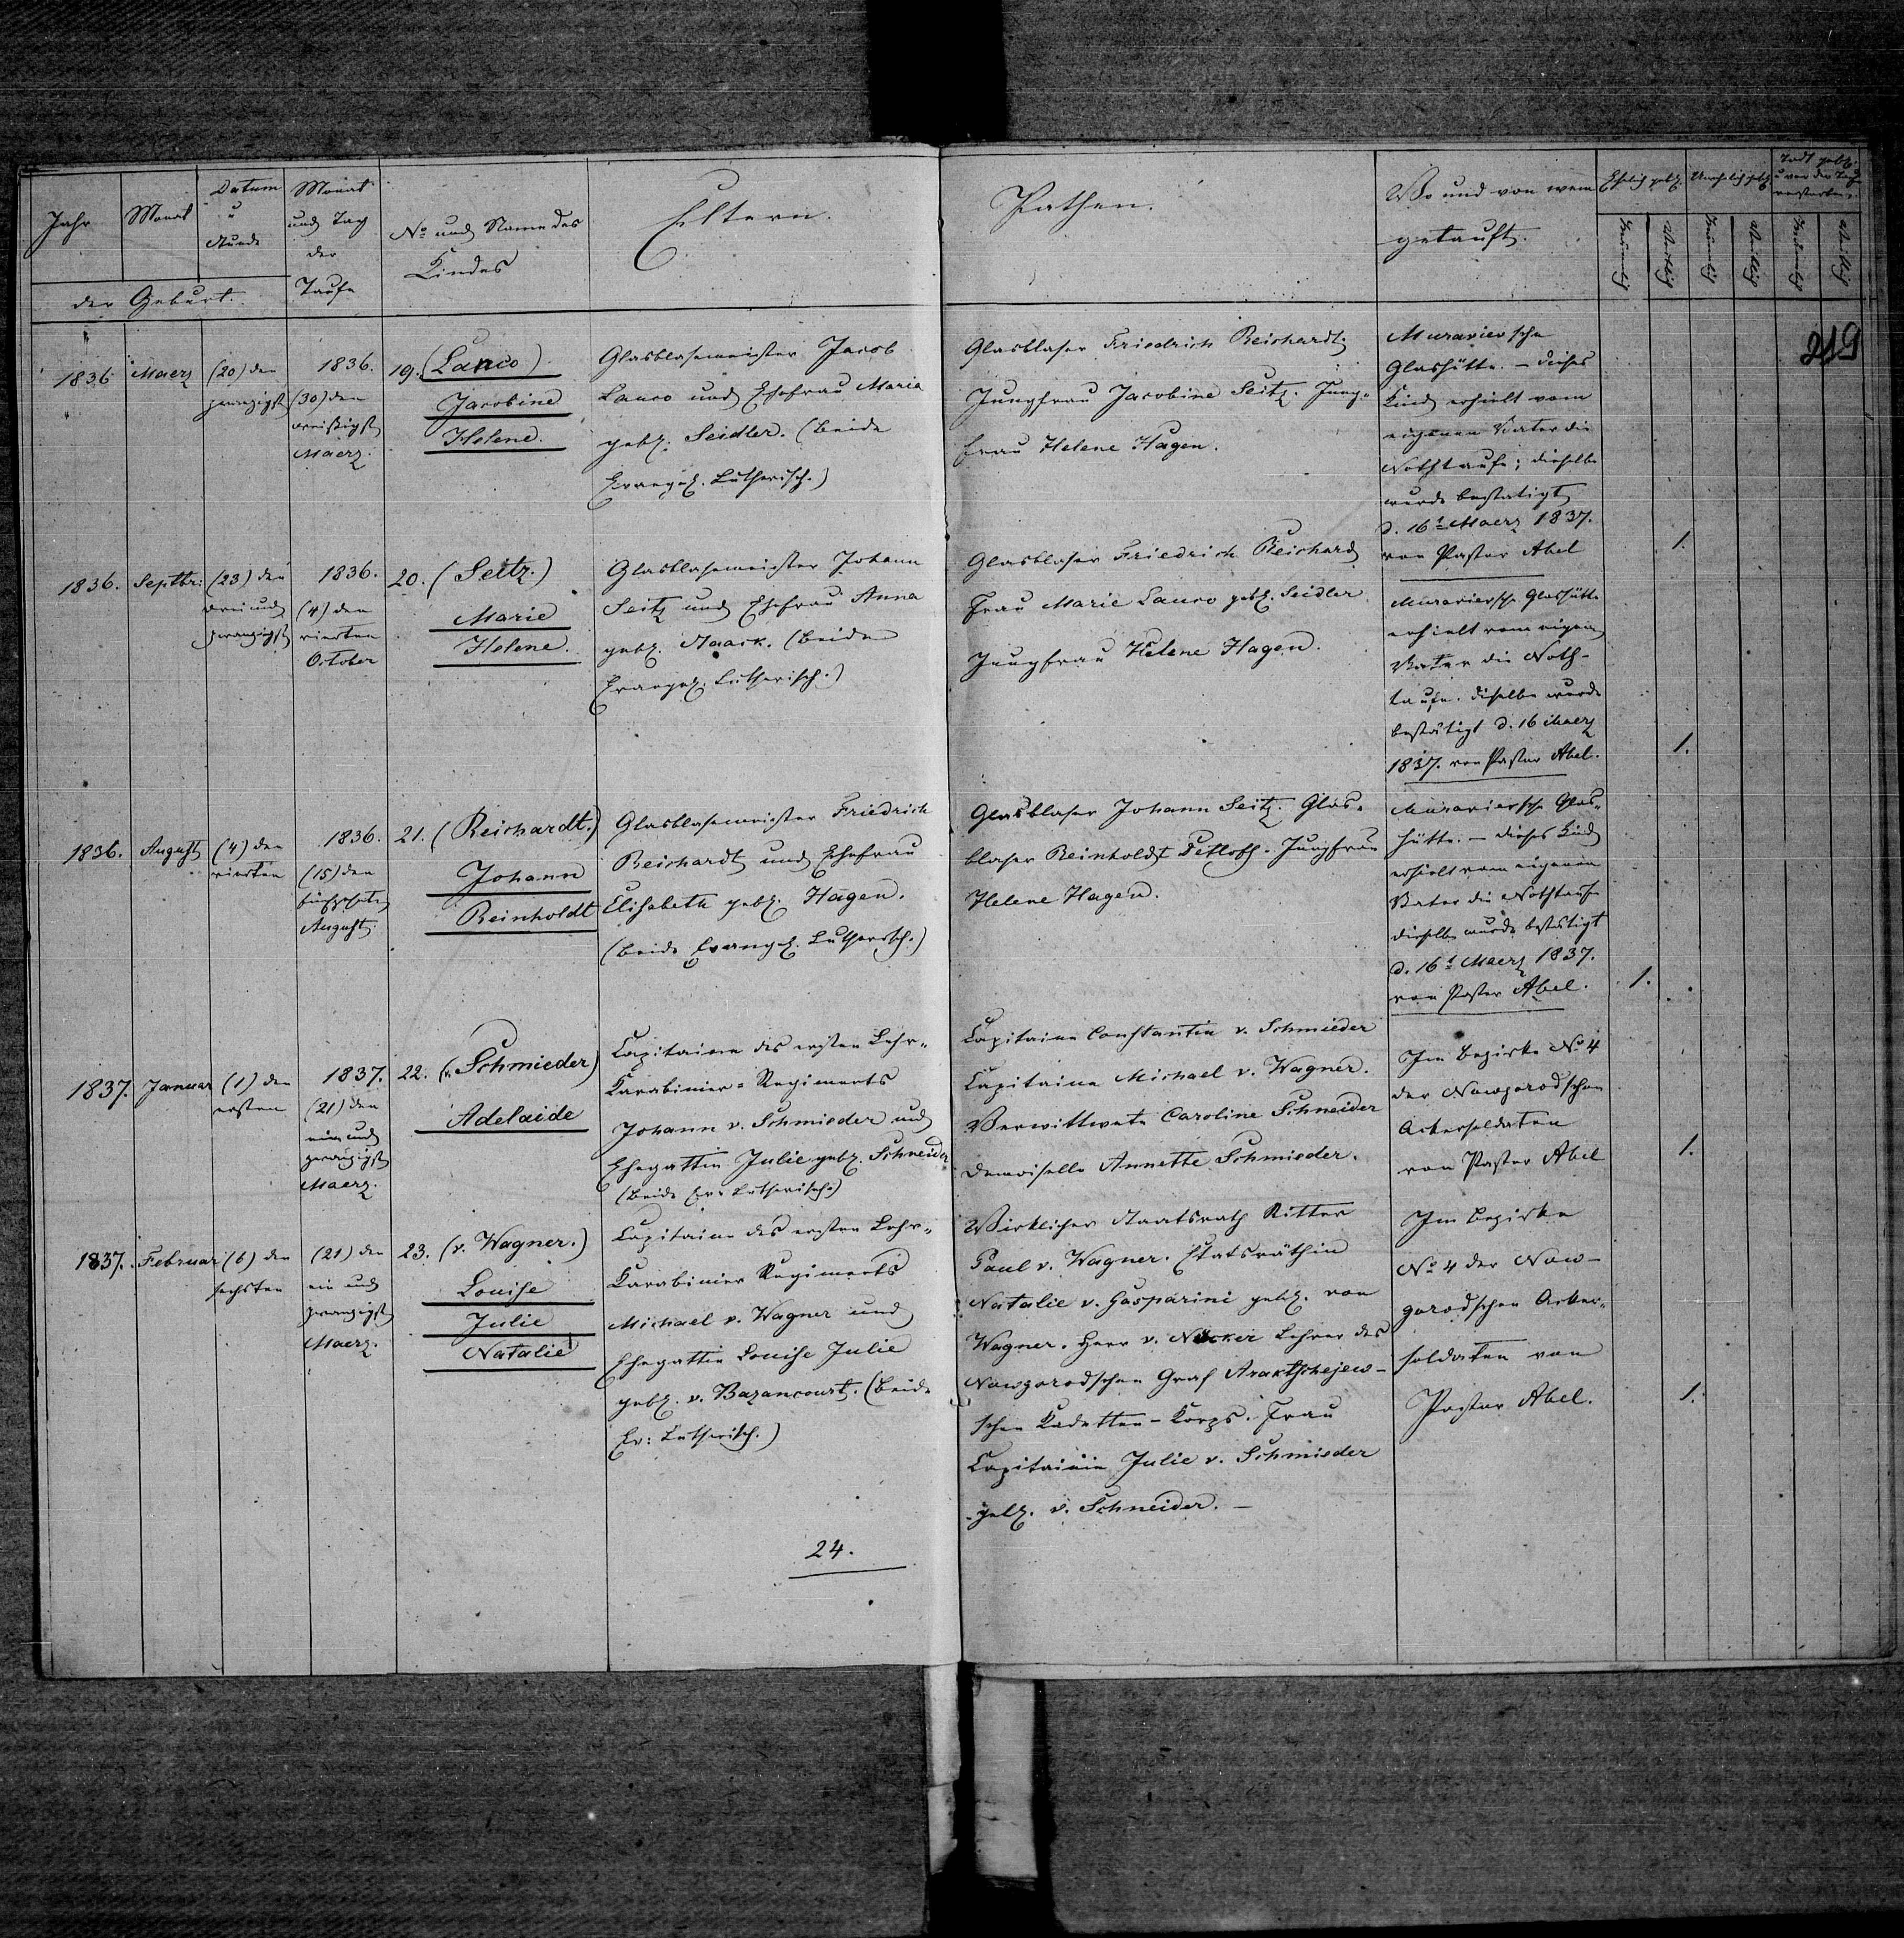 Jahr
Monat
Datum
u
Stunde
der Geburt.
Monat
und Tag
der
Taufe
No und Name des
Kindes
Eltern.
Pathen.
Wo und von wem
getauft.
Ehelich geb.
Unehelich geb.
Todt geb.
u vor der Taufe
verstorben.
Männlich
Weiblich
Männlich
Weiblich
Männlich
Weiblich
219
1836
Maerz
(20) den
zwanzigst
1836.
(30) den
dreißigst
Maerz.
19. (Lanco)
Jacobine
Helene.
Glasblasemeister Jacob
Lanco und Ehefrau Maria
geb. Seidler. (beide
Evangel. Lutherisch.)
Glasblaser Friedrich Reichardt.
Jungfrau Jacobine Seitz. Jung-
frau Helene Hagen.
Muraviewsche
Glashütte. – dieses
Kind erhielt vom
eigenen Vater die
Nothtaufe; dieselbe
wurde bestätigt
d. 16t Maerz 1837.
von Pastor Abel
1.
1836.
Septbr:
(23) den
drei und
zwanzigst
1836.
(4) den
vierten
October
20. (Seitz.)
Marie
Helene.
Glasblasemeister Johann
Seitz und Ehefrau Anna
geb. Maack. (beide
Evangel. Lutherisch.)
Glasblaser Friedrich Reichard
Frau Marie Lanco geb. Seidler
Jungfrau Helene Hagen.
Muraviewsche Glashütte
erhielt vom eigen
Vater die Noth-
taufe. dieselbe wurde
bestätigt d. 16 Maerz
1837. von Pastor Abel.
1.
1836.
August
(4) den
vierten
1836.
(15) den
fünfzehnte
August.
21. (Reichardt.)
Johann
Reinholdt
Glasblasemeister Friedrich
Reichardt und Ehefrau
Elisabeth geb. Hagen.
(beide Evangel. Lutherisch.)
Glasblaser Johann Seitz. Glas-
blaser Reinholdt Detloff. Jungfrau
Helene Hagen.
Muraviewsche Glas-
hütte. – dieses Kind
erhielt vom eigenen
Vater die Nothtaufe
dieselbe wurde bestätigt
d. 16t Maerz 1837.
von Pastor Abel.
1.
1837.
Januar
(1) den
ersten
1837.
(21) den
ein und
zwanzigst
Maerz.
22. (v. Schmieder)
Adelaide
Capitaine des ersten Lehr-
Karabinier-Regiments
Johann v. Schmieder und
Ehegattin Julie geb. Schneider
(beide Ev: Lutherisch.)
Capitaine Constantin v. Schmieder
Capitaine Michael v. Wagner.
Verwittwete Caroline Schneider
Demoiselle Annette Schmieder.
Im Bezirke No 4
der Nowgorodschen
Ackersoldaten
von Pastor Abel
1.
1837.
Februar
(6) den
sechsten
(21) den
ein und
zwanzigst
Maerz.
23. (v. Wagner.)
Louise
Julie
Natalie
Capitaine des ersten Lehr-
Karabinier Regiments
Michael v. Wagner und
Ehegattin Louise Julie
geb. v. Bazancourt. (beide
Ev: Lutherisch.)
Wirklicher Staatsrath Ritter
Paul v. Wagner. Etatsräthin
Natalie v. Gasparini geb. von
Wagner. Herr v. Näcker Lehrer des
Nowgorodschen Graf Araktschejew-
schen Kadetten-Korps. Frau
Capitainin Julie v. Schmieder
geb. v. Schneider. –
Im Bezirke
No 4 der Now-
gorodschen Acker-
soldaten von
Pastor Abel.
1.
24.